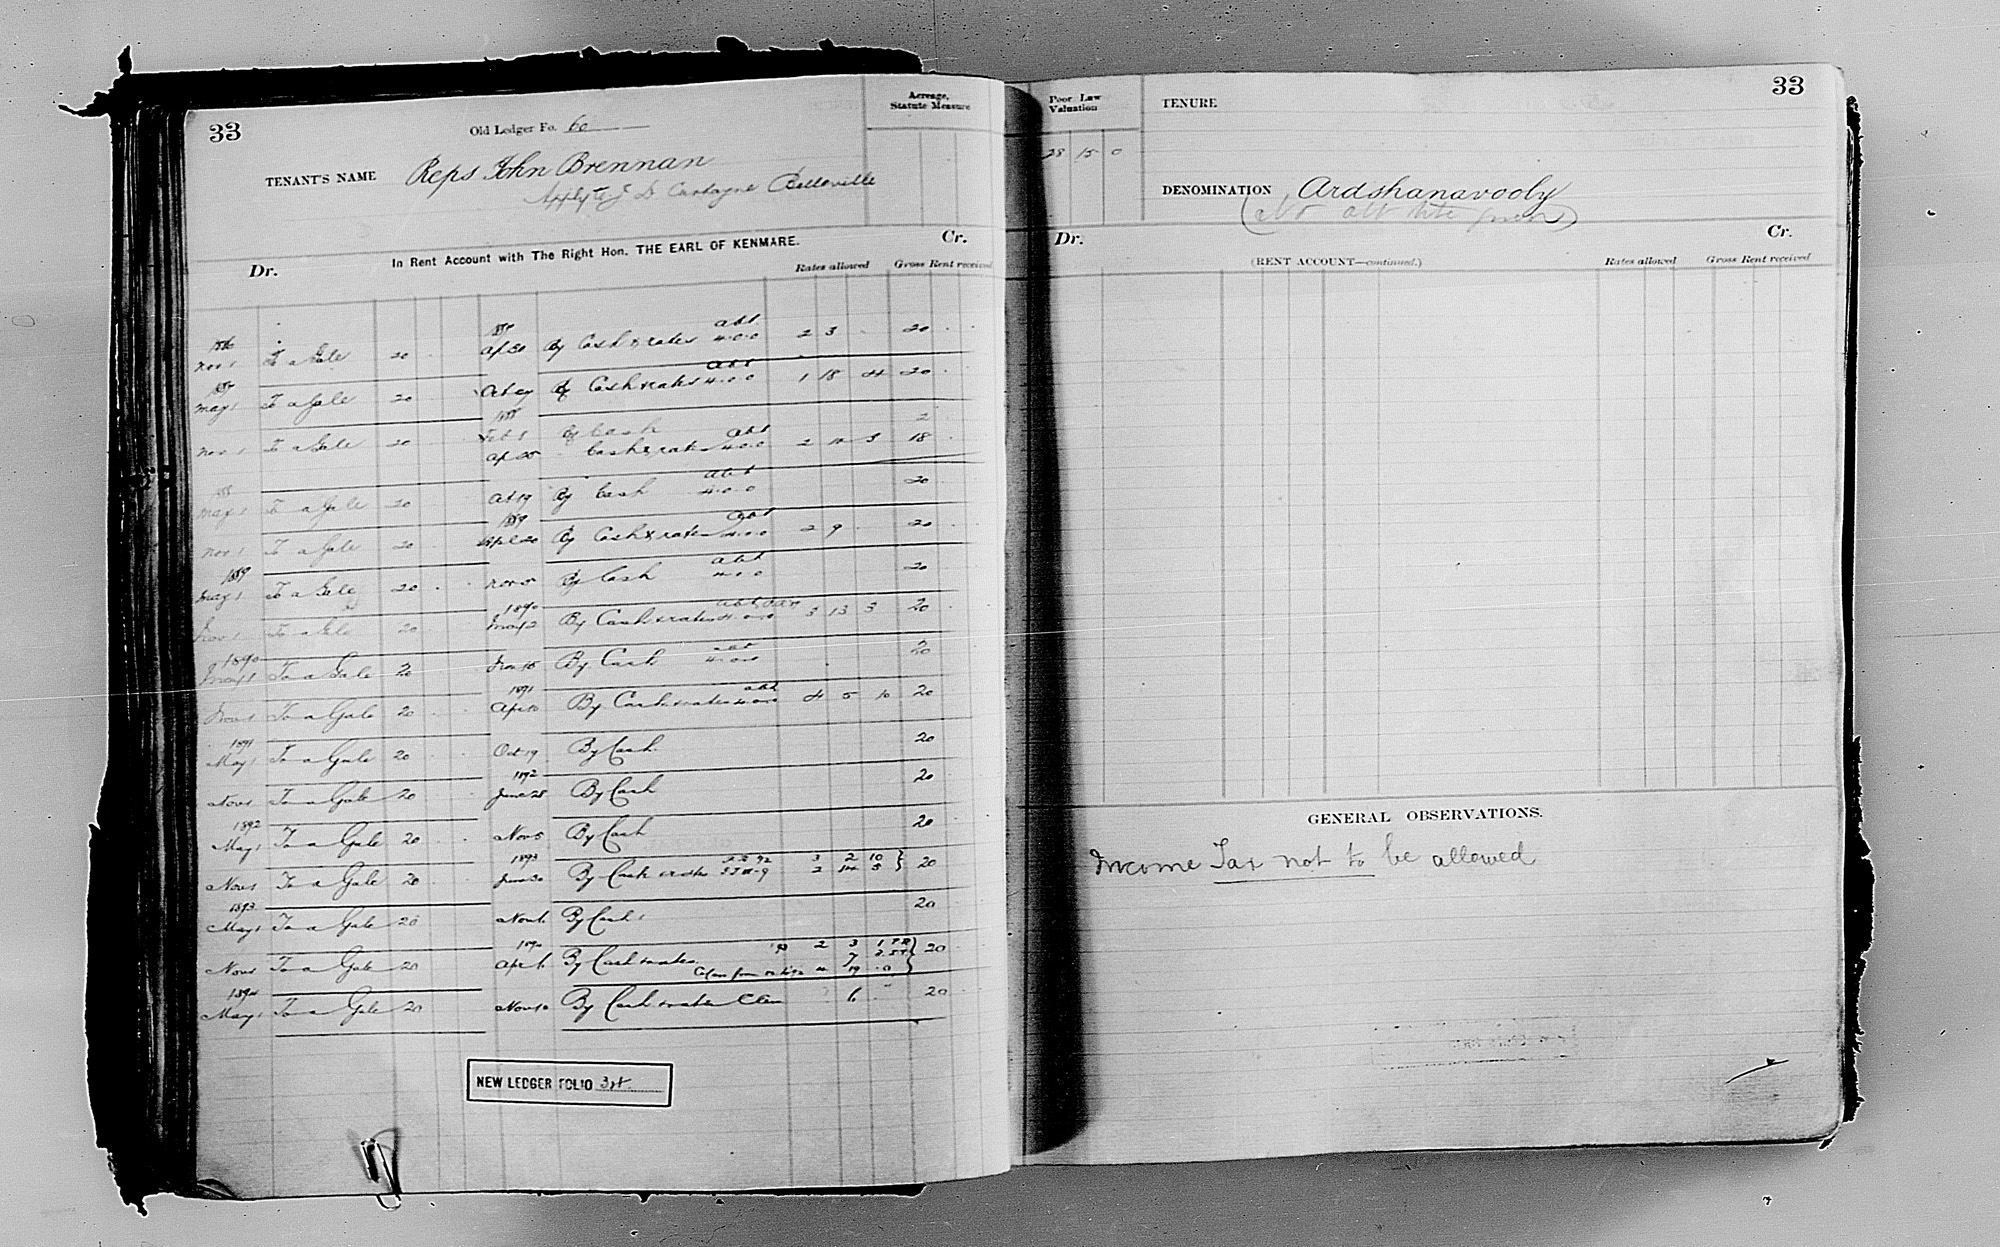 33
Old Ledger Fo. 60
Acreage,
Statute Measure
TENANT'S NAME Reps John Brennan
Apply to J D Belleville
In Rent Account with The Right Hon. THE EARL OF KENMARE.
Dr. Cr.
Rates allowed Gross Rent received
1886 1887 abt
Nov 1 To a Gale 20 Ap 30 By Cash & rates 4.0.0 2 3 20
1887 abt
May 1 To a Gale 20 By Cash & rates 4.0.0 1 18 4 20
1888
Nov 1 To a Gale 20 Feb 1 By Cash 2
abt
Ap 25 Cash & rates 4.0.0 2 10 3 18
1888 abt
May 1 To a Gale 20 Oct 19 By Cash 4.0.0 20
1889 abt
Nov 1 To a Gale 20 Apl 20 By Cash & rates 4.0.0 2 9 20
1889 abt
May 1 To a Gale 20 Nov 5 By Cash 4.0.0 20
1890 abt
Nov 1 To a Gale 20 May 2 By Cash & rates 4.0.0 3 13 3 20
1890 abt
May 1 To a Gale 20 Nov 15 By Cash 4.0.0 20
1891 abt
Nov 1 To a Gale 20 Apr 10 By Cash & rates 4.0.0 4 5 10 20
1891
May 1 To a Gale 20 Oct 19 By Cash 20
1892
Nov 1 To a Gale 20 June 28 By Cash 20
1892
May 1 To a Gale 20 Nov 5 By Cash 20
1893 92 3 2 10
Nov 1 To a Gale 20 June 30 By Cash & rates 2 14 5 20
1893
May 1 To a Gale 20 Nov 6 By Cash 20
1894 93 2 3 1
Nov 1 To a Gale 20 Apr 6 By Cash & rates 7 20
19 0
1894
May 1 To a Gale 20 Nov 10 By Cash & rates 6 20
NEW LEDGER FOLIO
33
Poor Law
Valuation
28 15 0
TENURE
DENOMINATION Ardshanavooly
(No abt
Dr. Cr.
(RENT ACCOUNT—continued.)
Rates allowed Gross Rent received
GENERAL OBSERVATIONS.
Income Tax not to be allowed